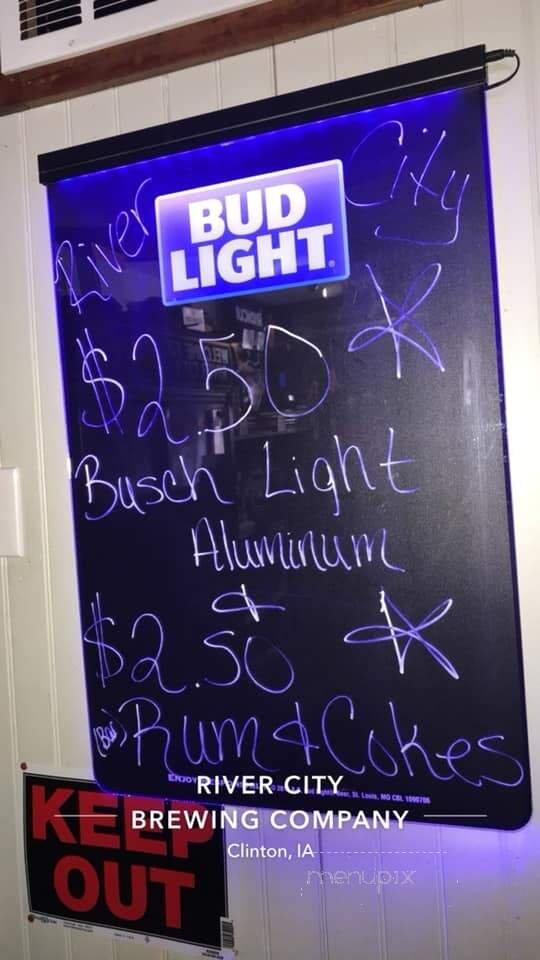 River City
BUD
LIGHT
$2.50
Busch Light
Aluminum
&
$2.50
(Bar) Rum & Cokes
ENJOY
Beer, St. Louis, MO
RIVER CITY
BREWING COMPANY
Clinton, IA
menupix
KEEP
OUT